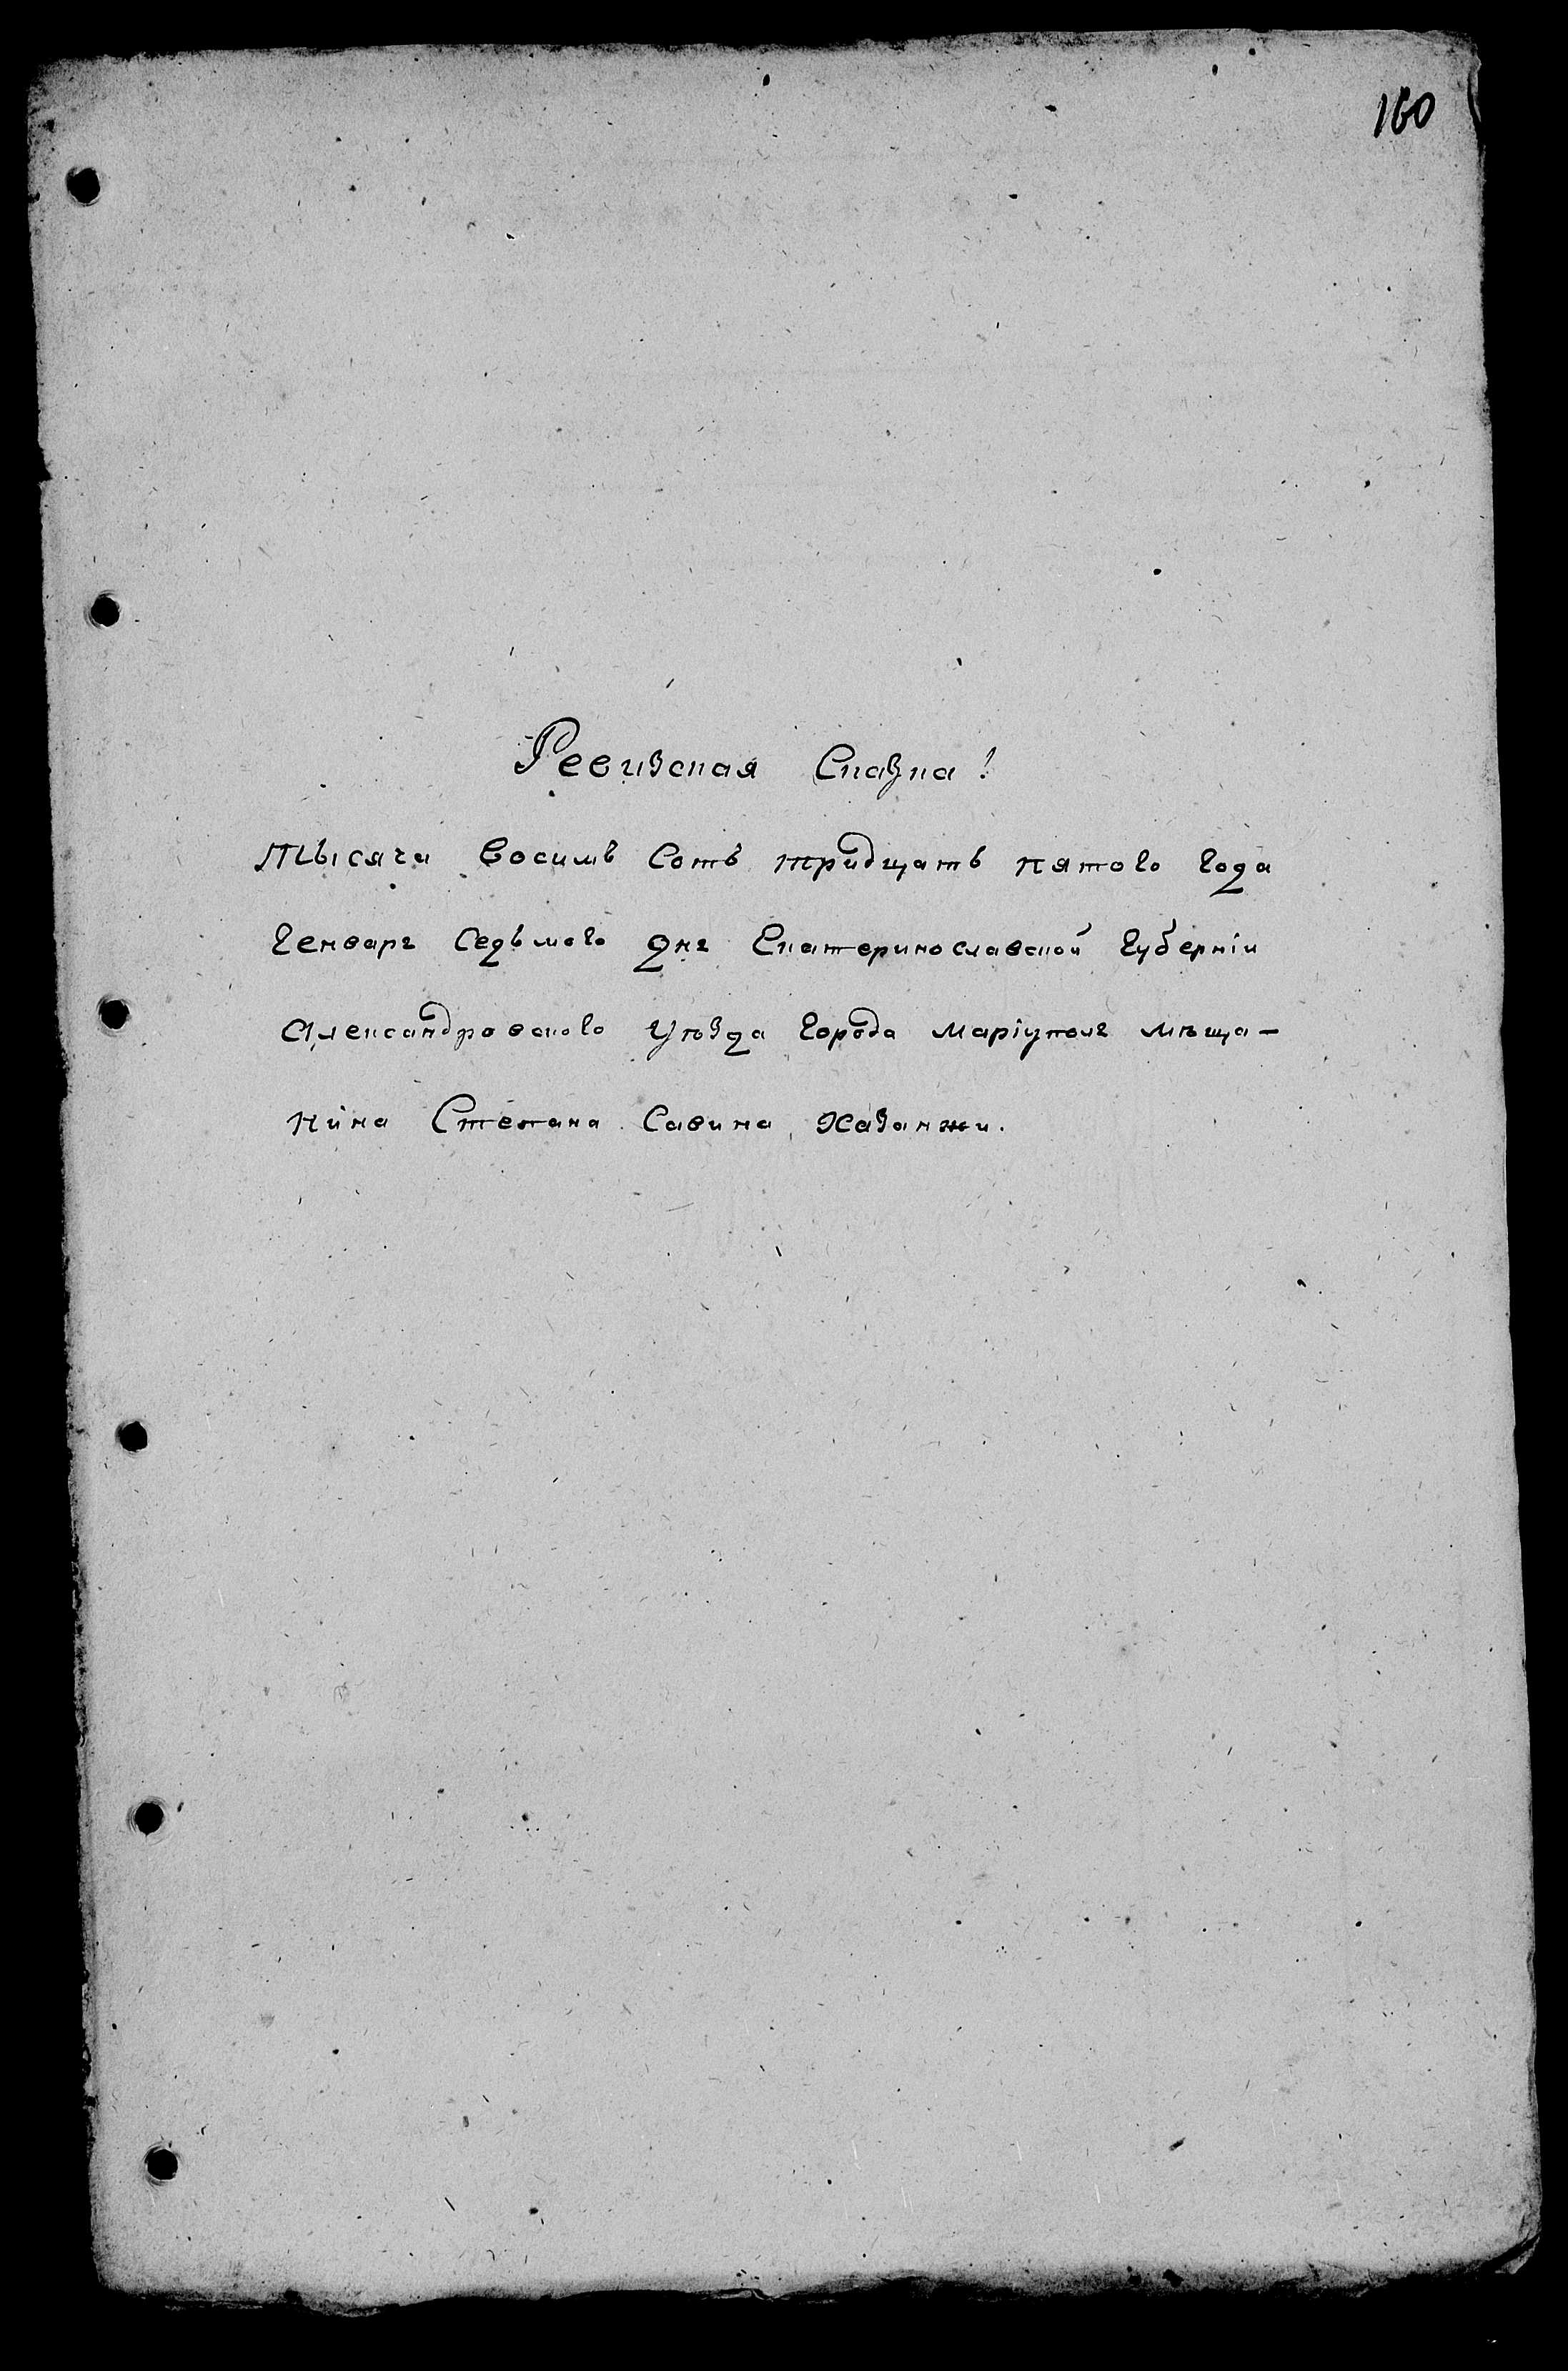 160
Ревизская Сказка!
Тысяча восимъ сотъ тридцать пятого года
Генваря седьмого дня Екатеринославской Губерніи
Александровского Уѣзда города Маріуполя мѣща-
нина Степана Савина Хазанжи.